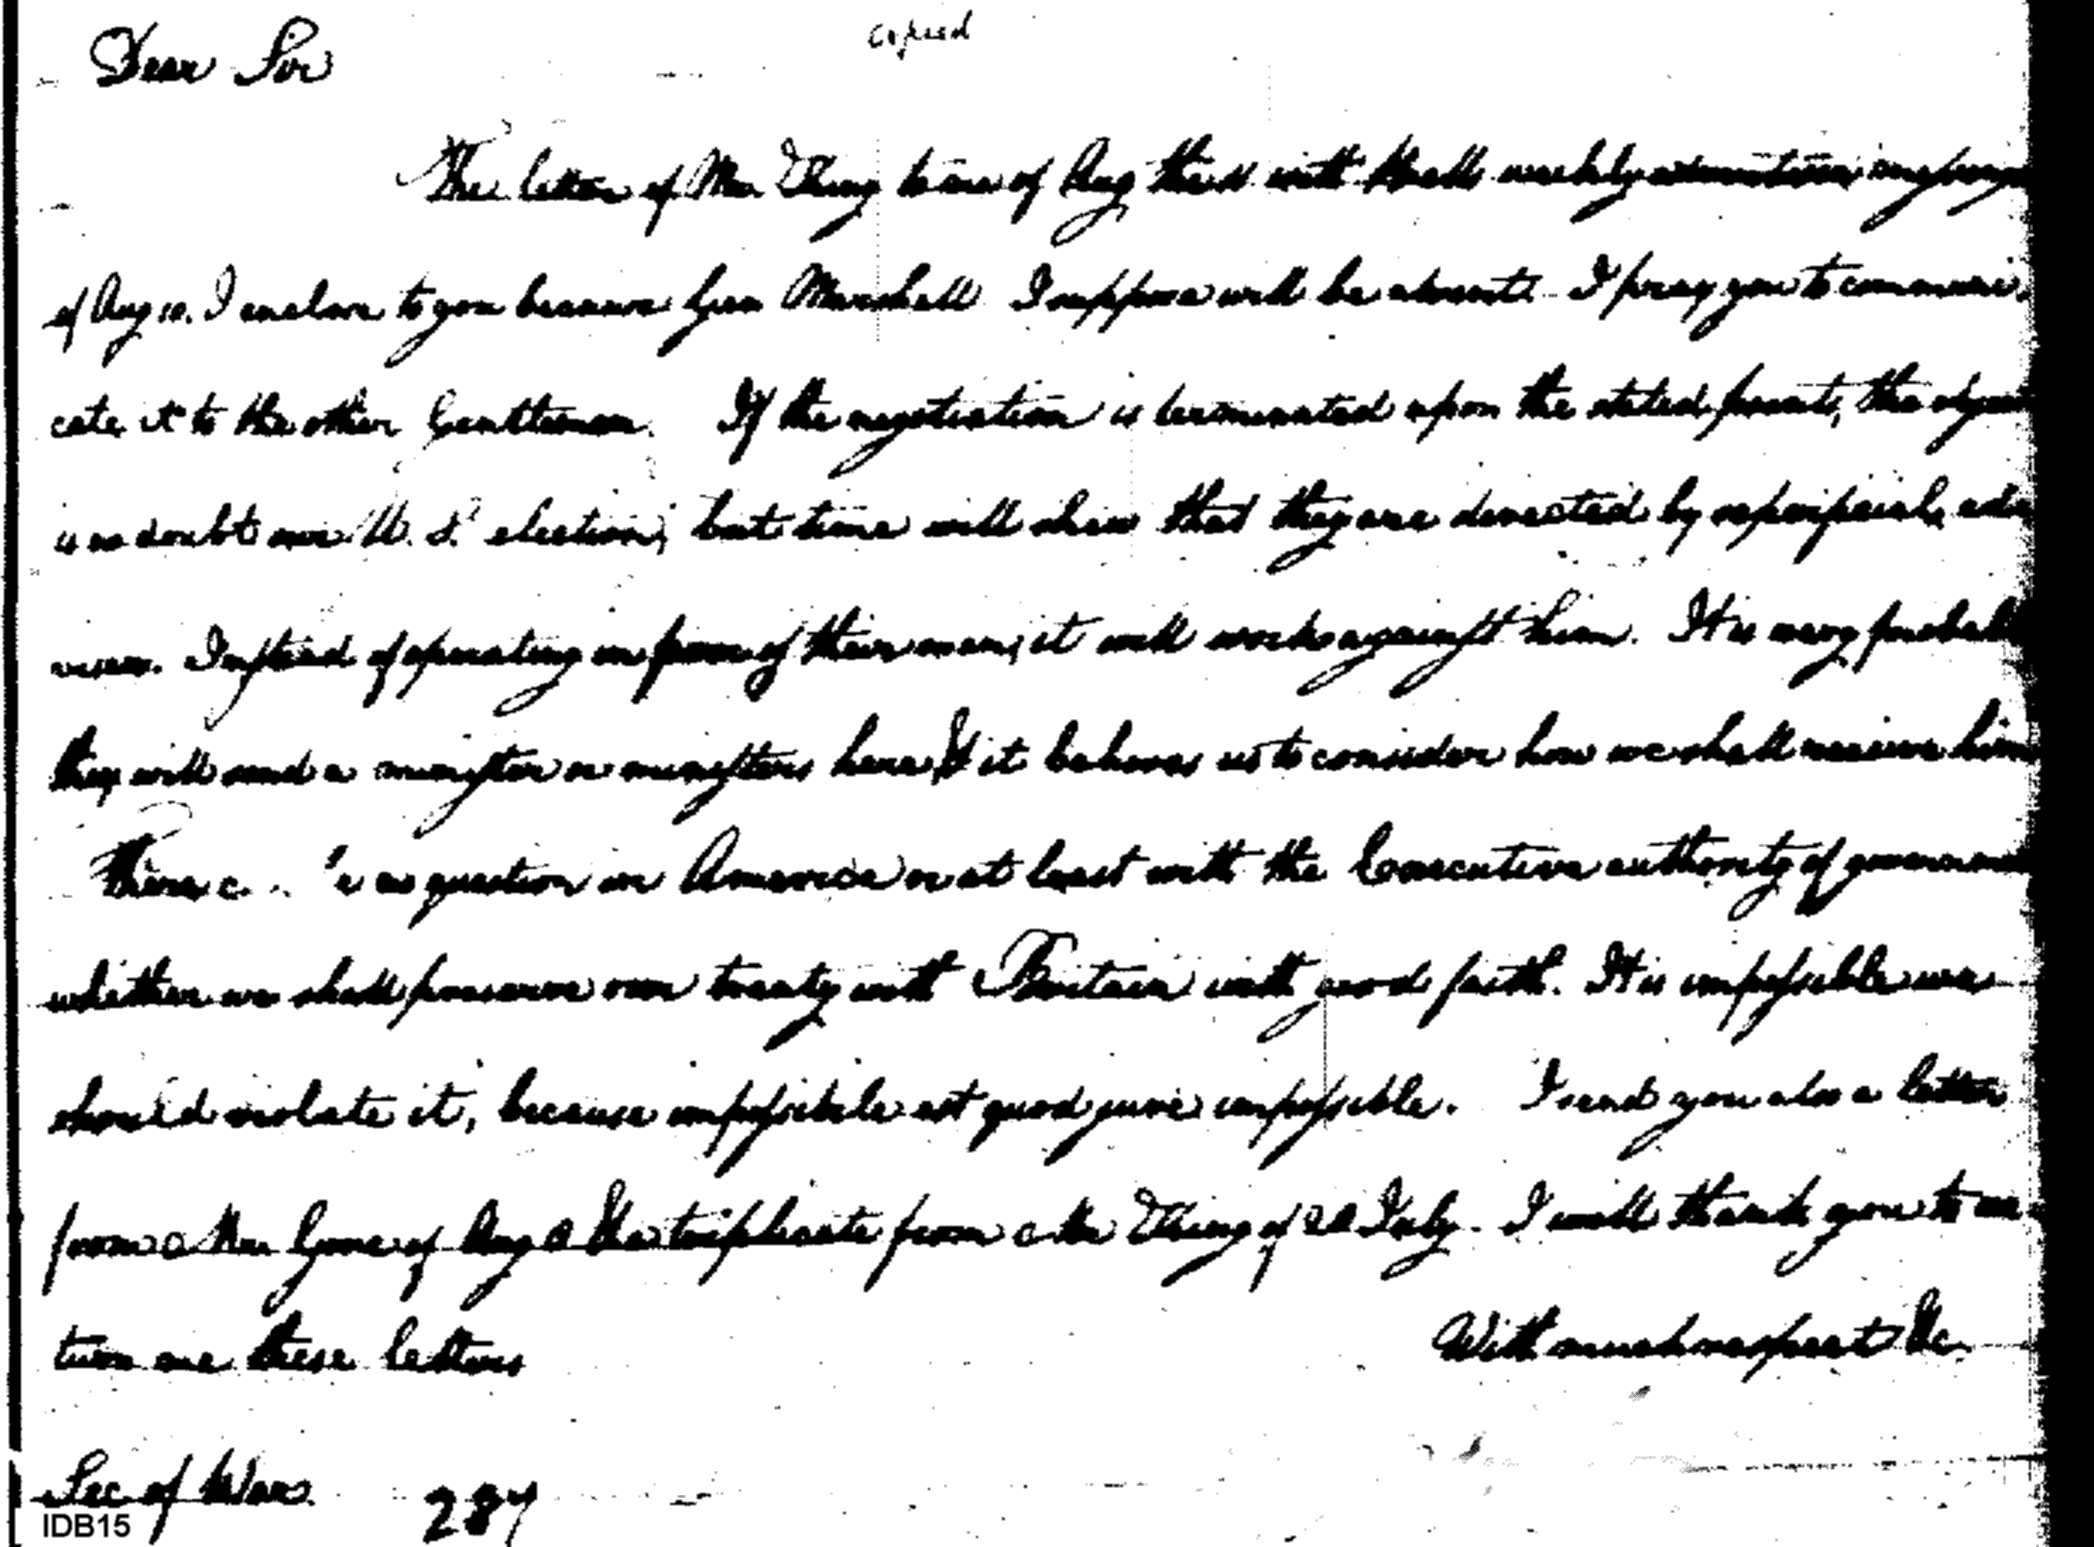 copied
Dear Sir
The letter of Mr. King to me of Aug the with Bells weekly
of Aug 10. I enclose to you because Gen Marshall I suppose will be absent. I pray you to communi
cate it to the other Gentlemen. If the negotiation is terminated upon the stated points, the
is no doubt our U. S. election; but time will shew that they are directed by superficial ad
visers. Instead of operating in favor of their man, it will work against him. It is very probable
they will send a minister or ministers here & it behoves us to consider how we shall receive him
There is no question in America or at least with the Executive authority of government
whether we shall preserve our treaty with Britain with good faith. It is impossible we
should violate it, because impossible est quod jure impossible. I send you also a letter
from Mr Gore of Aug & the triplicate from Mr King of July. I will thank you to re
turn me these letters
With much respect &c.
Sec of War.
287
IDB15